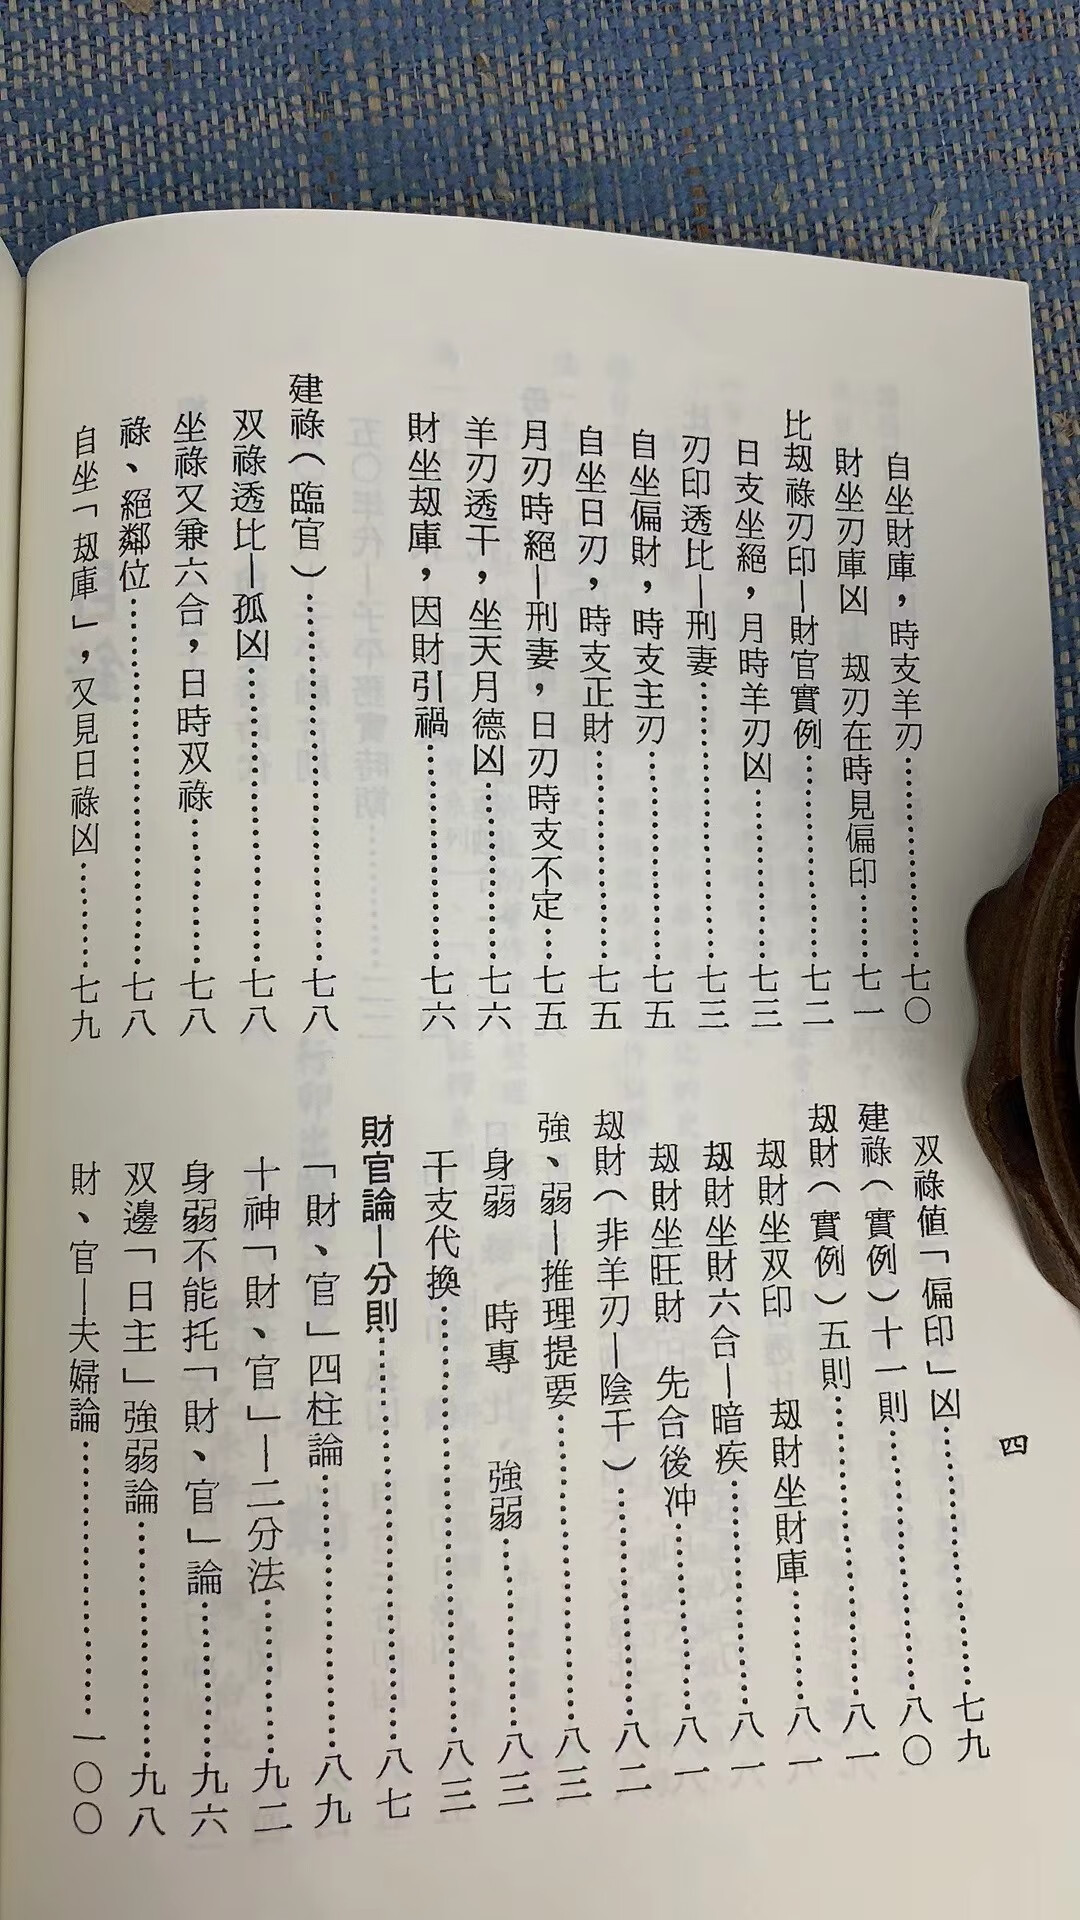 自坐財庫，時支羊刃……七〇
財坐刃庫凶　刼刃在時見偏印……七一
比刼祿刃印—財官實例……七二
日支坐絕，月時羊刃凶……七三
刃印透比—刑妻……七三
自坐偏財，時支主刃……七五
自坐日刃，時支正財……七五
月刃時絕—刑妻，日刃時支不定……七五
羊刃透干，坐天月德凶……七六
財坐刼庫，因財引禍……七六
建祿（臨官）……七八
双祿透比—孤凶……七八
坐祿又兼六合，日時双祿……七八
祿、絕鄰位……七八
自坐「刼庫」，又見日祿凶……七九
双祿值「偏印」凶……七九
建祿（實例）十一則……八〇
刼財（實例）五則……八一
刼財坐双印　刼財坐財庫……八一
刼財坐財六合—暗疾……八一
刼財坐旺財　先合後冲……八一
刼財（非羊刃—陰干）……八二
強、弱—推理提要……八三
身弱　時專　強弱……八三
干支代換……八三
財官論—分則……八七
「財、官」四柱論……八九
十神「財、官」—二分法……九二
身弱不能托「財、官」論……九六
双邊「日主」強弱論……九八
財、官—夫婦論……一〇〇
四